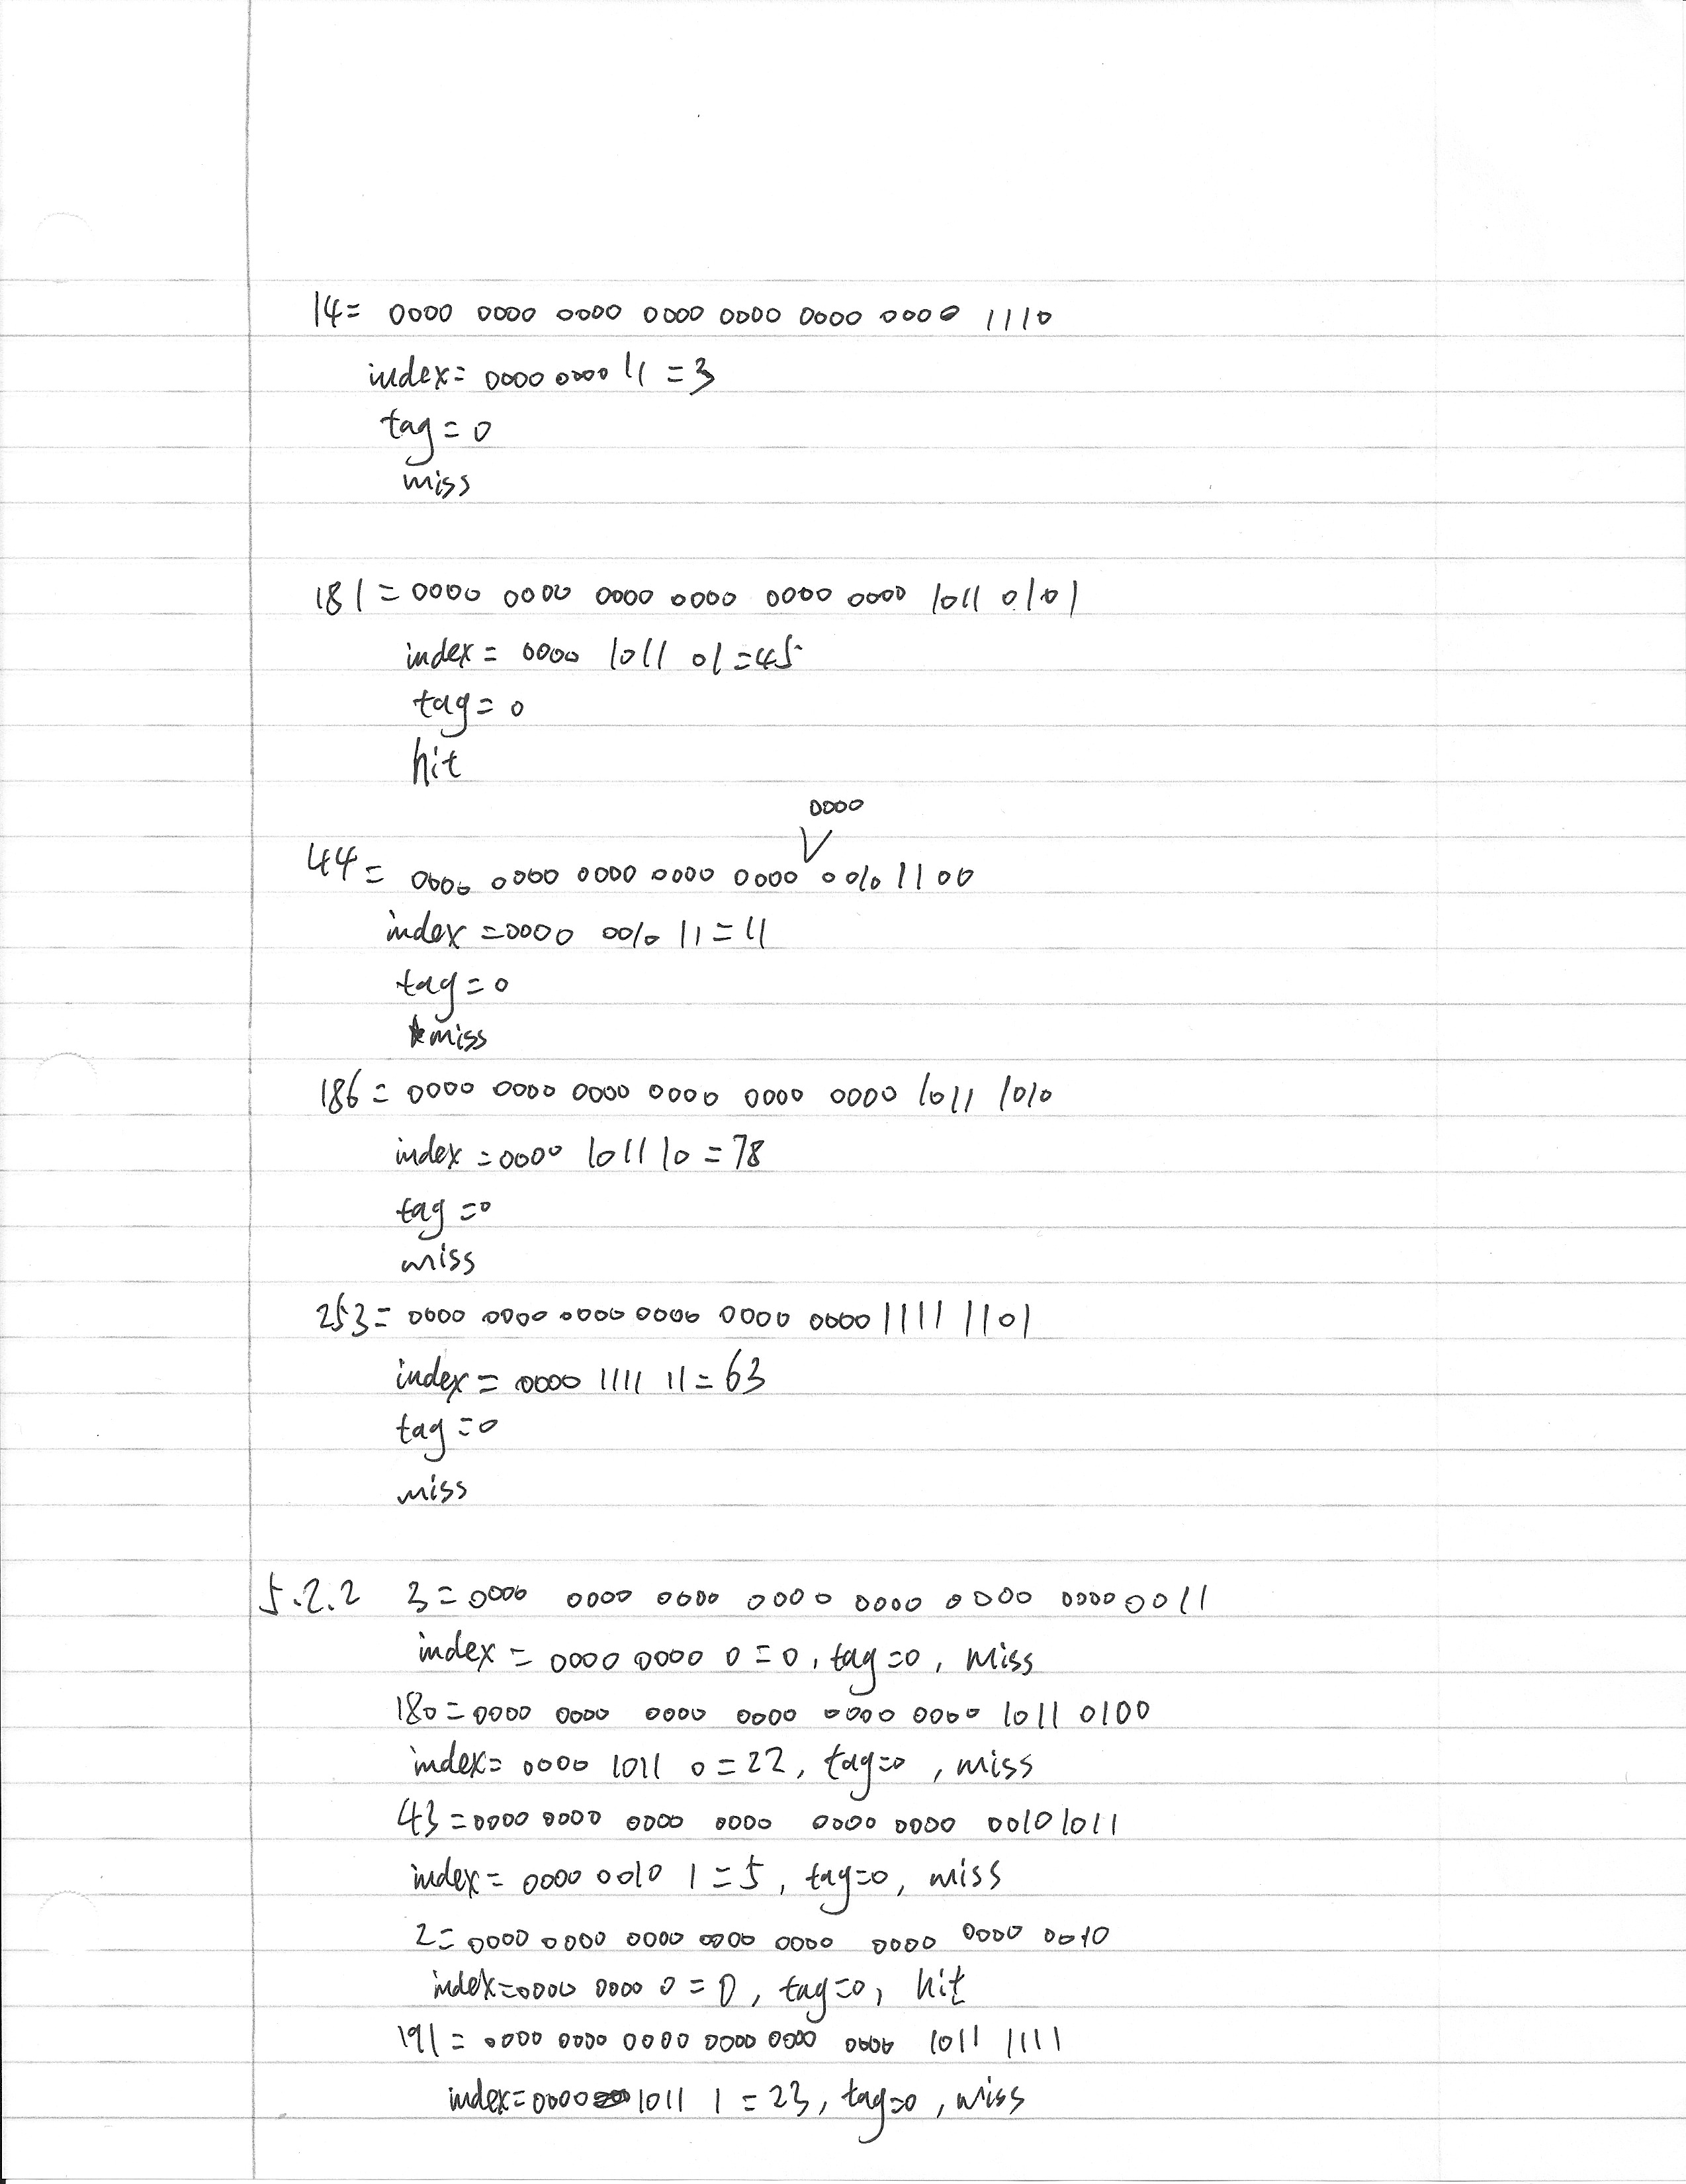 14= 0000 0000 0000 0000 0000 0000 0000 1110
index= 0000 0000 11 =3
tag=0
miss
181=0000 0000 0000 0000 0000 0000 1011 0101
index= 0000 1011 01=45
tag=0
hit
0000
44= 0000 0000 0000 0000 0000 0010 1100
index=0000 0010 11=11
tag=0
miss
186=0000 0000 0000 0000 0000 0000 1011 1010
index=0000 1011 10=78
tag=0
miss
253=0000 0000 0000 0000 0000 0000 1111 1101
index=0000 1111 11=63
tag=0
miss
5.2.2 3=0000 0000 0000 0000 0000 0000 0000 0011
index=0000 0000 0=0, tag=0, miss
180=0000 0000 0000 0000 0000 0000 1011 0100
index=0000 1011 0=22, tag=0, miss
43=0000 0000 0000 0000 0000 0000 0010 1011
index=0000 0010 1=5, tag=0, miss
2=0000 0000 0000 0000 0000 0000 0000 0010
index=0000 0000 0=0, tag=0, hit
191=0000 0000 0000 0000 0000 0000 1011 1111
index=0000 1011 1=23, tag=0, miss